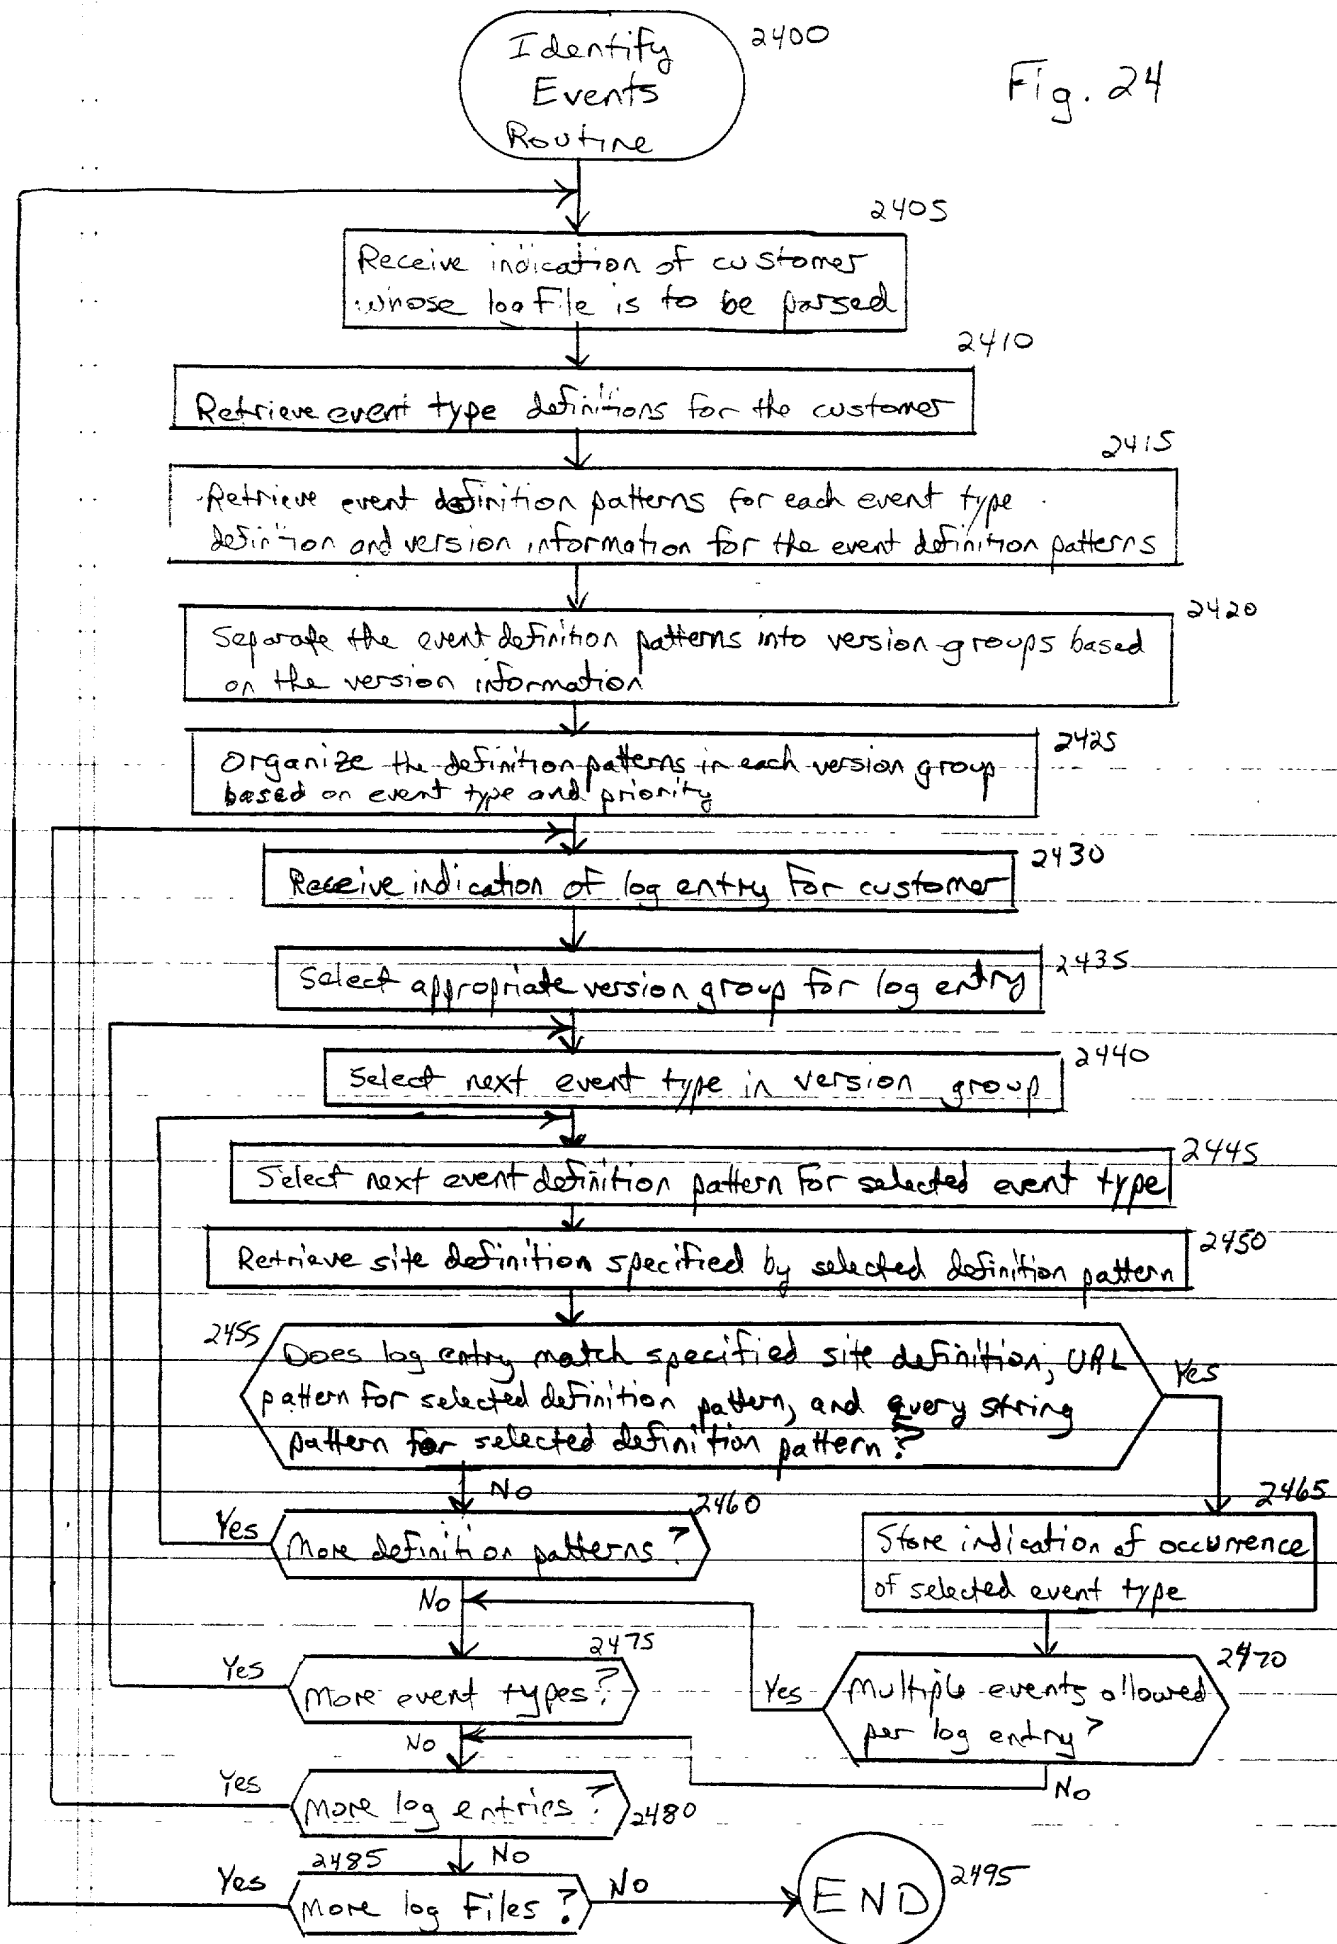 Identify
Events
Routine
2400
Fig. 24
2405
Receive indication of customer
whose log file is to be parsed
2410
Retrieve event type definitions for the customer
2415
Retrieve event definition patterns for each event type
definition and version information for the event definition patterns
2420
Separate the event definition patterns into version groups based
on the version information
2425
Organize the definition patterns in each version group
based on event type and priority
2430
Receive indication of log entry for customer
2435
Select appropriate version group for log entry
2440
Select next event type in version group
2445
Select next event definition pattern for selected event type
2450
Retrieve site definition specified by selected definition pattern
2455
Does log entry match specified site definition, URL
pattern for selected definition pattern, and query string
pattern for selected definition pattern?
Yes
No
2460
Yes
More definition patterns?
2465
Store indication of occurrence
of selected event type
No
2475
Yes
More event types?
2470
Yes
Multiple events allowed
per log entry?
No
No
Yes
More log entries?
2480
2485
No
Yes
More log files?
No
END
2495